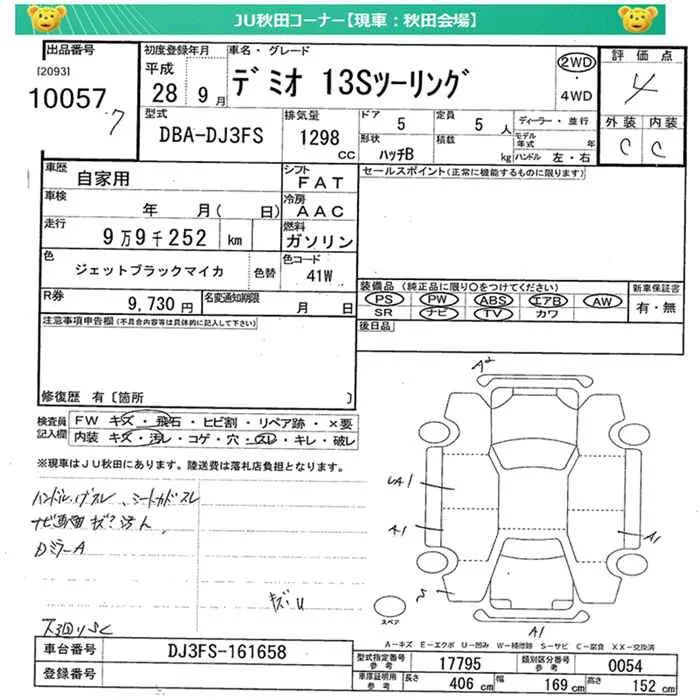 JU秋田コーナー【現車：秋田会場】
出品番号
[2093]
10057
7
初度登録年月
平成
28 9月
車名・グレード
デミオ 13Sツーリング
2WD
4WD
評価点
4
外装 内装
C C
型式
DBA-DJ3FS
排気量
1298
CC
ドア
5
定員
5 人
形状
ハッチB
積載
kg
ディーラー・並行
モデル年式
年
ハンドル 左・右
車歴
自家用
シフト
FAT
車検
年 月( 日)
冷房
AAC
走行
9万9千252 km
燃料
ガソリン
色
ジェットブラックマイカ
色替
色コード
41W
R券
9,730 円
名変通知期限
月 日
セールスポイント(正常に機能するものに限ります)
装備品(純正品に限り○をつけてください)
PS PW ABS エアB AW
SR ナビ TV カワ
新車保証書
有・無
後日品
注意事項申告欄(不具合内容等は具体的に記入して下さい)
修復歴 有〔箇所 〕
検査員記入欄
FW キズ・飛石・ヒビ割・リペア跡・×要
内装 キズ・汚レ・コゲ・穴・スレ・キレ・破レ
※現車はJU秋田にあります。陸送費は落札店負担となります。
ハンドル
DミラーA
キズ・U
A2
UA1
A1
A1
S
A1
スペア
A－キズ E－エクボ U－凹み W－補修跡 S－サビ C－腐食 XX－交換済
車台番号
DJ3FS-161658
登録番号
型式指定番号
参考
17795
類別区分番号
参考
0054
車庫証明用
参考
長さ
406 cm
幅
169 cm
高さ
152 cm